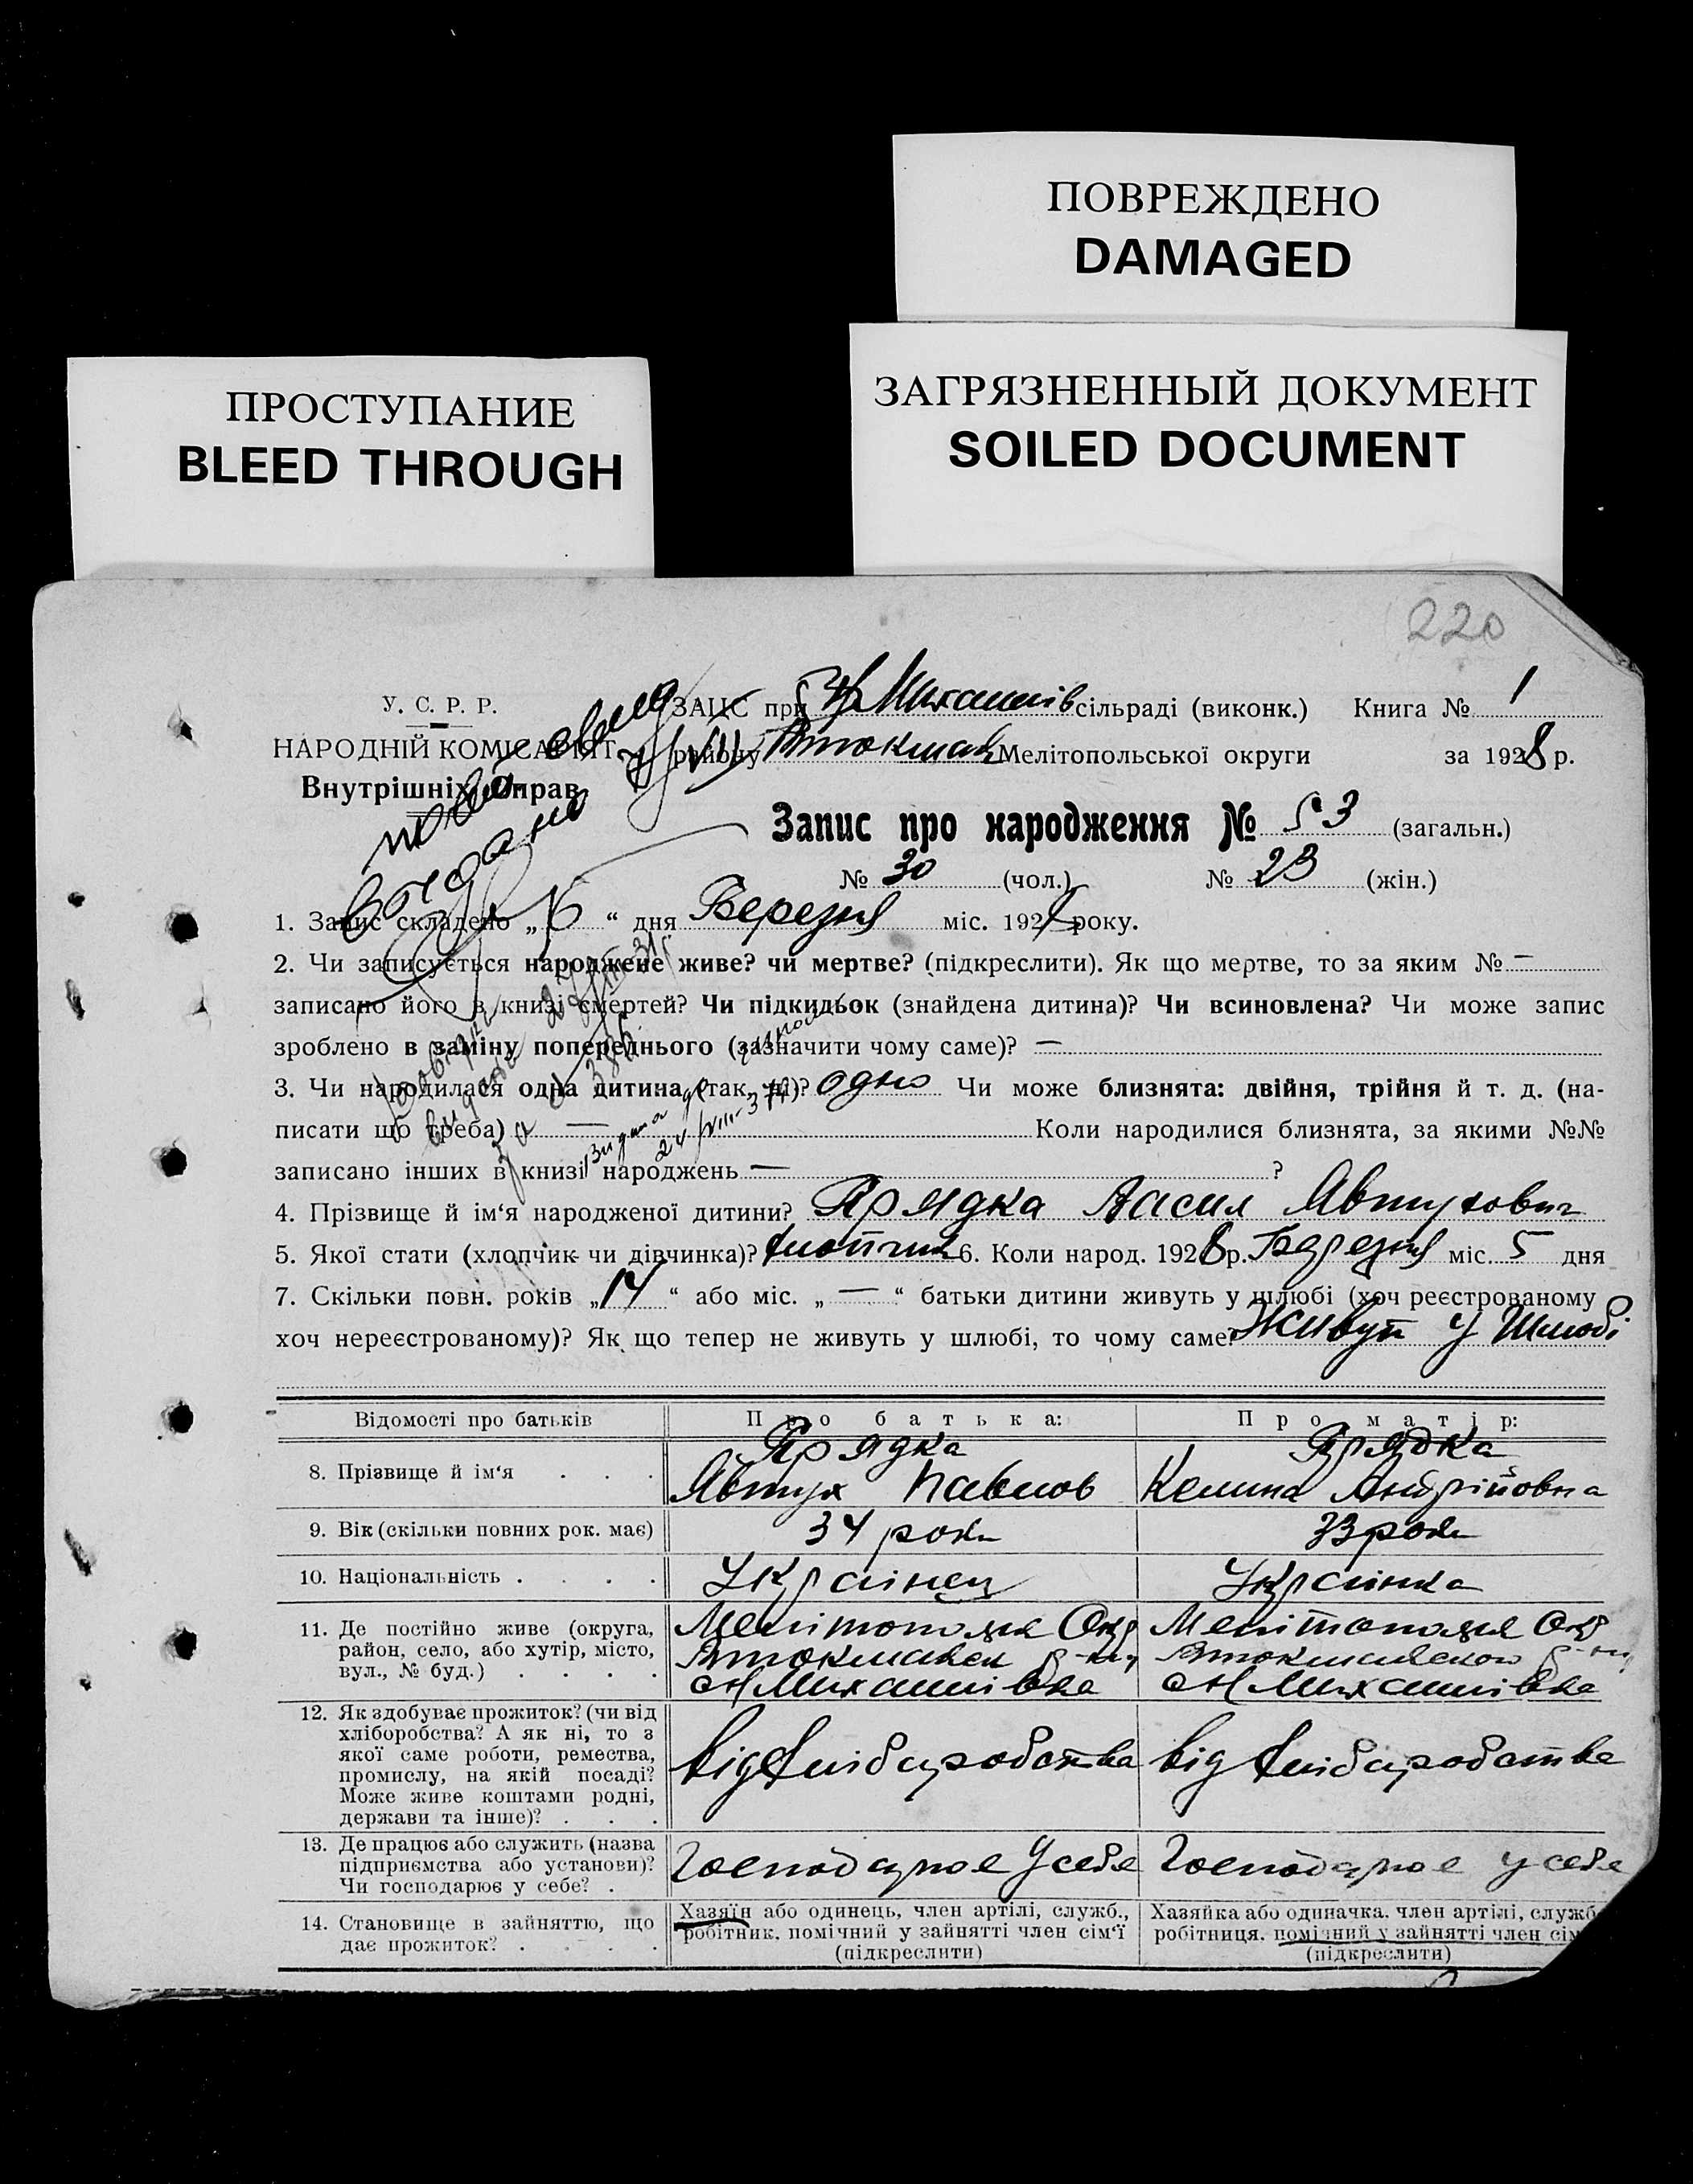 ПОВРЕЖДЕНО
DAMAGED
ПРОСТУПАНИЕ
BLEED THROUGH
ЗАГРЯЗНЕННЫЙ ДОКУМЕНТ
SOILED DOCUMENT
220
У. С. Р. Р.
НАРОДНІЙ КОМІСАРІЯТ
Внутрішніх Справ
ЗАЦС при Михайлів сільраді (виконк.) Книга № 1
району Втокмац Мелітопольської округи за 1928 р.
Запис про народження № 53 (загальн.)
№ 30 (чол.) № 23 (жін.)
1. Запис складено „6“ дня Березня міс. 1928 року.
2. Чи записується народжене живе? чи мертве? (підкреслити). Як що мертве, то за яким № —
записано його в книзі смертей? Чи підкидьок (знайдена дитина)? Чи всиновлена? Чи може запис
зроблено в заміну попереднього (зазначити чому саме)? —
3. Чи народилася одна дитина (так, ні)? одно Чи може близнята: двійня, трійня й т. д. (на-
писати що треба) — Коли народилися близнята, за якими №№
записано інших в книзі народжень — ?
4. Прізвище й ім‘я народженої дитини? Прядка Васил Явтухович
5. Якої стати (хлопчик чи дівчинка)? хлопчик 6. Коли народ. 1928 р. Березня міс. 5 дня
7. Скільки повн. років „14“ або міс. „—“ батьки дитини живуть у шлюбі (хоч реєстрованому
хоч нереєстрованому)? Як що тепер не живуть у шлюбі, то чому саме? Живут у Шлюбі
Відомості про батьків Про батька: Про матір:
8. Прізвище й ім‘я . . . Прядка Явтух Павлов Прядка Келина Андрійовна
9. Вік (скільки повних рок. має) 34 роки 33 роки
10. Національність . . . . Українец Українка
11. Де постійно живе (округа,
район, село, або хутір, місто,
вул., № буд.) . . . .
Мелітополья Окр Мелітополья Окр
12. Як здобуває прожиток? (чи від
хліборобства? А як ні, то з
якої саме роботи, ремества,
промислу, на якій посаді?
Може живе коштами родні,
держави та інше)? . . .
від хліборобства від хліборобства
13. Де працює або служить (назва
підприємства або установи)?
Чи господарює у себе? .
Господарює у себе Господарює у себе
14. Становище в зайняттю, що
дає прожиток? . . . .
Хазяїн або одинець, член артілі, служб.,
робітник, помічний у зайнятті член сім‘ї
(підкреслити)
Хазяйка або одиначка, член артілі, служб
робітниця, помічний у зайнятті член сім
(підкреслити)